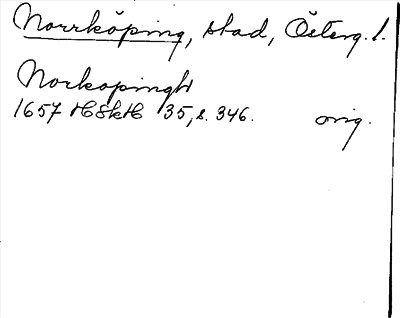 Norrköping, stad, Österg. l.
Norkopingh
1657 HSkH 35, s. 346. orig.